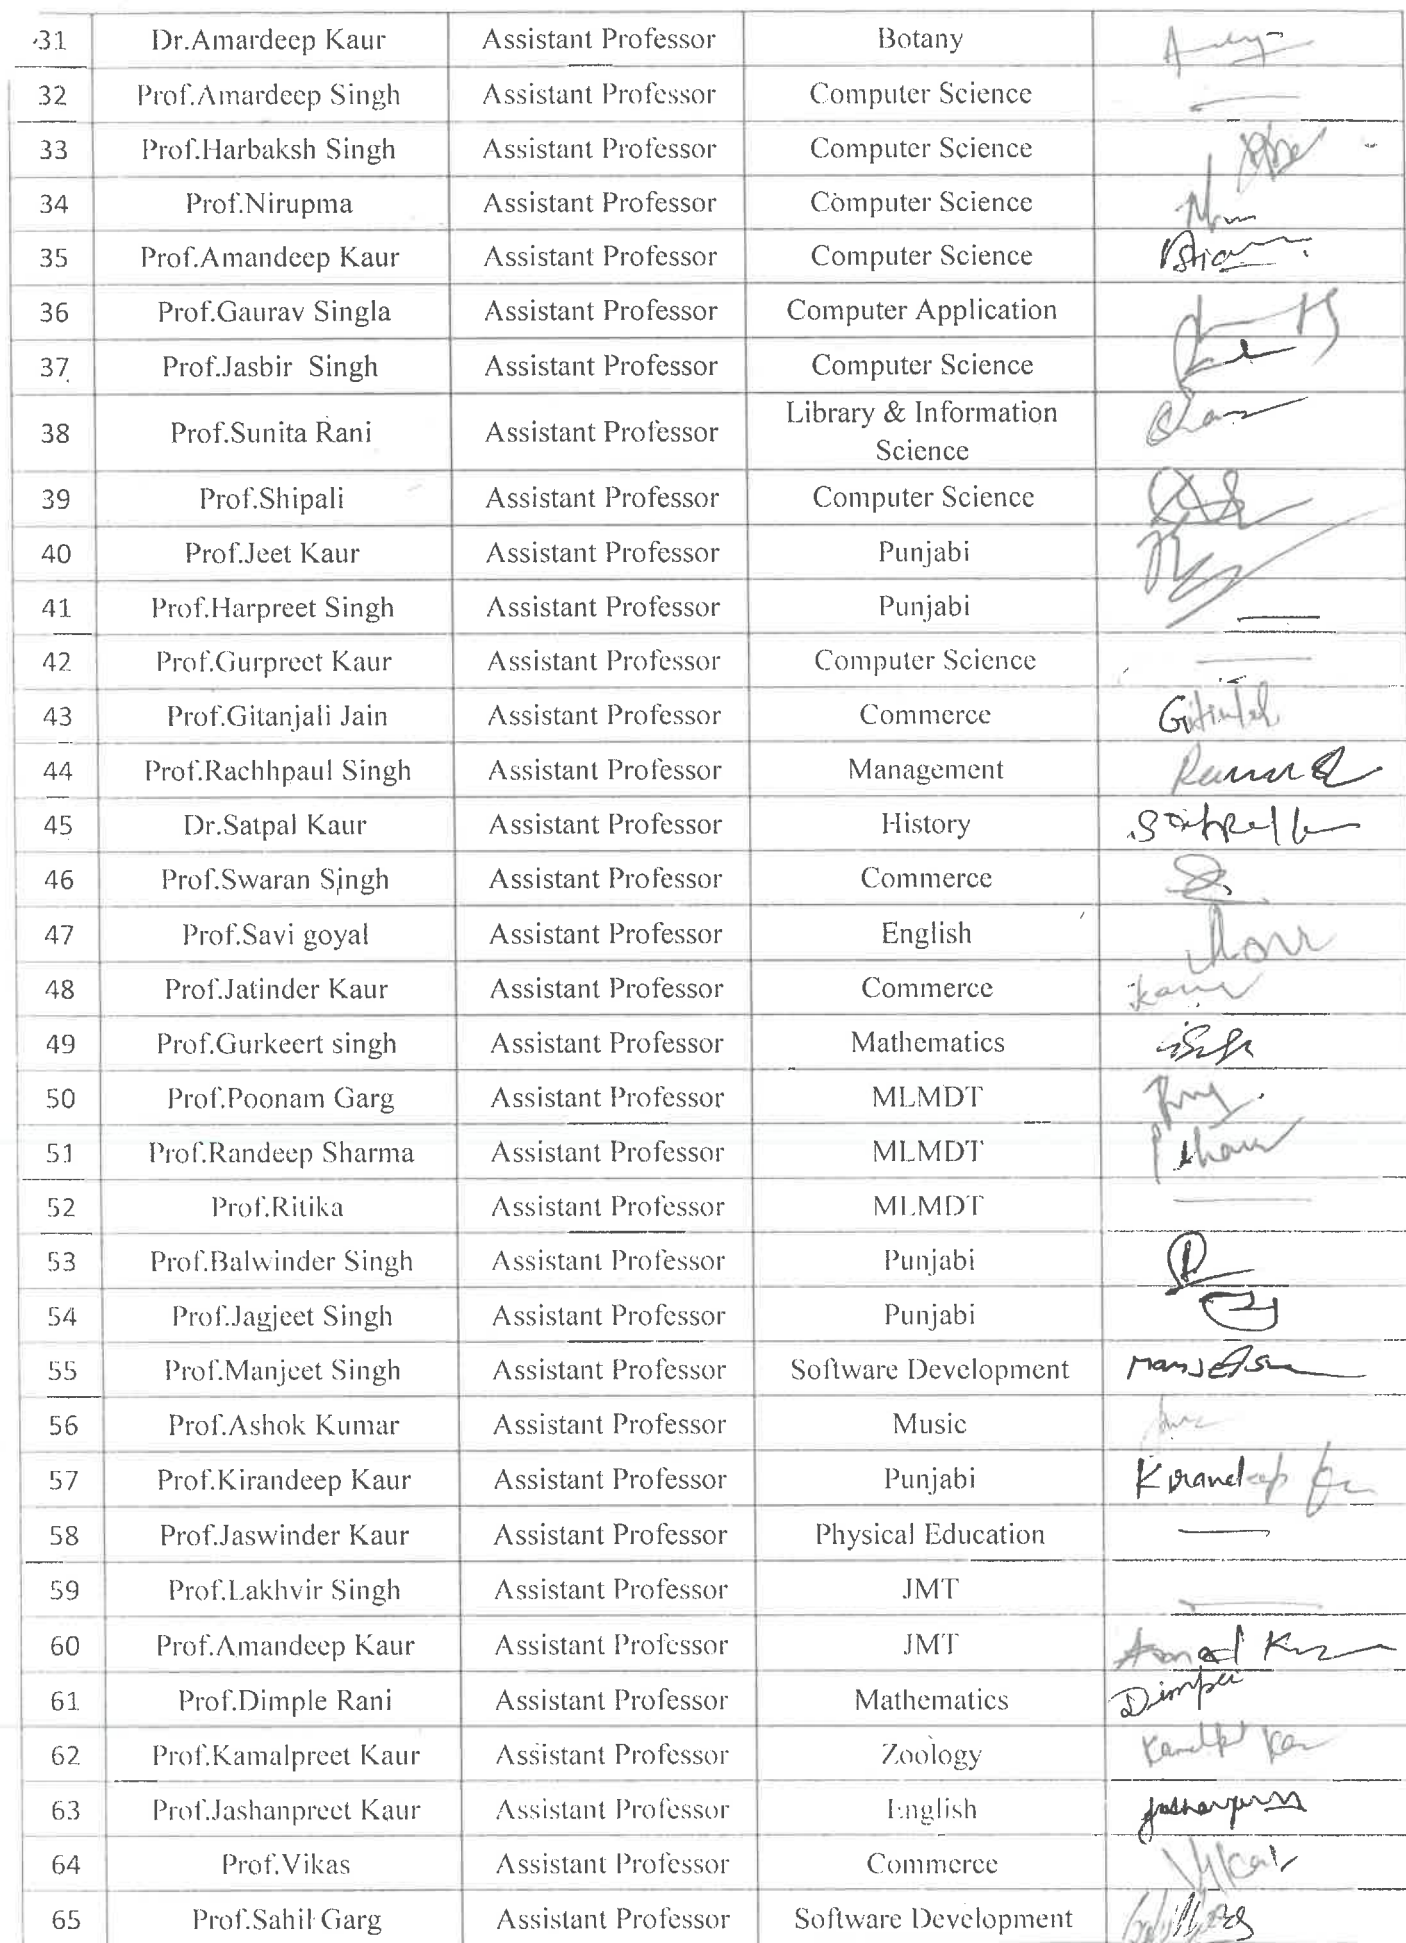 31 Dr.Amardeep Kaur Assistant Professor Botany
32 Prof.Amardeep Singh Assistant Professor Computer Science
33 Prof.Harbaksh Singh Assistant Professor Computer Science
34 Prof.Nirupma Assistant Professor Computer Science
35 Prof.Amandeep Kaur Assistant Professor Computer Science
36 Prof.Gaurav Singla Assistant Professor Computer Application
37 Prof.Jasbir Singh Assistant Professor Computer Science
38 Prof.Sunita Rani Assistant Professor Library & Information
Science
39 Prof.Shipali Assistant Professor Computer Science
40 Prof.Jeet Kaur Assistant Professor Punjabi
41 Prof.Harpreet Singh Assistant Professor Punjabi
42 Prof.Gurpreet Kaur Assistant Professor Computer Science
43 Prof.Gitanjali Jain Assistant Professor Commerce
44 Prof.Rachhpaul Singh Assistant Professor Management
45 Dr.Satpal Kaur Assistant Professor History
46 Prof.Swaran Singh Assistant Professor Commerce
47 Prof.Savi goyal Assistant Professor English
48 Prof.Jatinder Kaur Assistant Professor Commerce
49 Prof.Gurkeert singh Assistant Professor Mathematics
50 Prof.Poonam Garg Assistant Professor MLMDT
51 Prof.Randeep Sharma Assistant Professor MLMDT
52 Prof.Ritika Assistant Professor MLMDT
53 Prof.Balwinder Singh Assistant Professor Punjabi
54 Prof.Jagjeet Singh Assistant Professor Punjabi
55 Prof.Manjeet Singh Assistant Professor Software Development
56 Prof.Ashok Kumar Assistant Professor Music
57 Prof.Kirandeep Kaur Assistant Professor Punjabi Kirandeep
58 Prof.Jaswinder Kaur Assistant Professor Physical Education
59 Prof.Lakhvir Singh Assistant Professor JMT
60 Prof.Amandeep Kaur Assistant Professor JMT
61 Prof.Dimple Rani Assistant Professor Mathematics
62 Prof.Kamalpreet Kaur Assistant Professor Zoology
63 Prof.Jashanpreet Kaur Assistant Professor English
64 Prof.Vikas Assistant Professor Commerce
65 Prof.Sahil Garg Assistant Professor Software Development